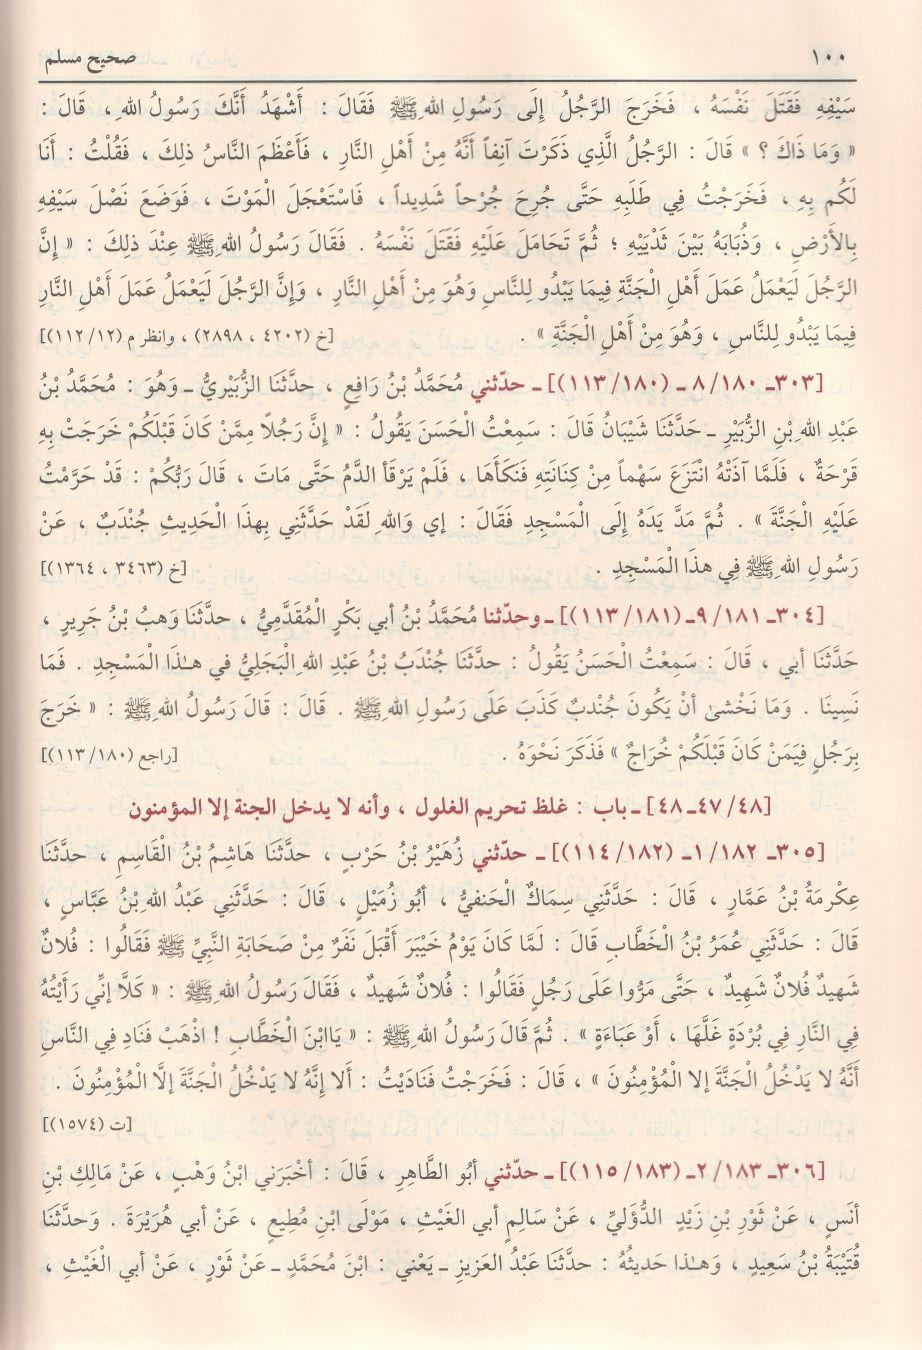 ١٠٠ صحيح مسلم
سَيْفِهِ فَقَتَلَ نَفْسَهُ ، فَخَرَجَ الرَّجُلُ إِلَى رَسُولِ اللهِ ﷺ فَقَالَ : أَشْهَدُ أَنَّكَ رَسُولُ اللهِ ، قَالَ :
« وَمَا ذَاكَ ؟ » قَالَ : الرَّجُلُ الَّذِي ذَكَرْتَ آنِفاً أَنَّهُ مِنْ أَهْلِ النَّارِ ، فَأَعْظَمَ النَّاسُ ذلِكَ ، فَقُلْتُ : أَنَا
لَكُم بِهِ ، فَخَرَجْتُ فِي طَلَبِهِ حَتَّى جُرِحَ جُرْحاً شَدِيداً ، فَاسْتَعْجَلَ الْمَوْتَ ، فَوَضَعَ نَصْلَ سَيْفِهِ
بِالأَرْضِ ، وَذُبَابَهُ بَيْنَ ثَدْيَيْهِ ؛ ثُمَّ تَحَامَلَ عَلَيْهِ فَقَتَلَ نَفْسَهُ . فَقَالَ رَسُولُ اللهِ ﷺ عِنْدَ ذلِكَ : « إِنَّ
الرَّجُلَ لَيَعْمَلُ عَمَلَ أَهْلِ الْجَنَّةِ فِيمَا يَبْدُو لِلنَّاسِ وَهُوَ مِنْ أَهْلِ النَّارِ ، وَإِنَّ الرَّجُلَ لَيَعْمَلُ عَمَلَ أَهْلِ النَّارِ
فِيمَا يَبْدُو لِلنَّاسِ ، وَهُوَ مِنْ أَهْلِ الْجَنَّةِ » . [خ (٤٢٠٢ ، ٢٨٩٨) ، وانظر م (١١٢/١٢)]
[٣٠٣ـ ٨/١٨٠ ـ (١١٣/١٨٠)] ـ حدّثني مُحَمَّدُ بْنُ رَافِعٍ ، حَدَّثَنَا الزُّبَيْرِيُّ ـ وَهُوَ : مُحَمَّدُ بْنُ
عَبْدِ اللهِ بْنِ الزُّبَيْرِ ـ حَدَّثَنَا شَيْبَانُ قَالَ : سَمِعْتُ الْحَسَنَ يَقُولُ : « إِنَّ رَجُلاً مِمَّنْ كَانَ قَبْلَكُمْ خَرَجَتْ بِهِ
قَرْحَةٌ ، فَلَمَّا آذَتْهُ انْتَزَعَ سَهْماً مِنْ كِنَانَتِهِ فَنَكَأَهَا ، فَلَمْ يَرْقَأ الدَّمُ حَتَّى مَاتَ ، قَالَ رَبُّكُمْ : قَدْ حَرَّمْتُ
عَلَيْهِ الْجَنَّةَ » . ثُمَّ مَدَّ يَدَهُ إِلَى الْمَسْجِدِ فَقَالَ : إي وَاللهِ لَقَدْ حَدَّثَنِي بِهذَا الْحَدِيثِ جُنْدَبٌ ، عَنْ
رَسُولِ اللهِ ﷺ فِي هذَا الْمَسْجِدِ . [خ (٣٤٦٣ ، ١٣٦٤)]
[٣٠٤ـ ٩/١٨١ـ (١١٣/١٨١)] ـ وحدّثنا مُحَمَّدُ بْنُ أبي بَكْرٍ الْمُقَدَّمِيُّ ، حَدَّثَنَا وَهبُ بْنُ جَرِيرٍ ،
حَدَّثَنَا أبي ، قَالَ : سَمِعْتُ الْحَسَنَ يَقُولُ : حدَّثَنَا جُنْدَبُ بْنُ عَبْدِ اللهِ الْبَجَلِيُّ في هـٰذَا الْمَسْجِدِ . فَمَا
نَسِينَا . وَمَا نَخْشىٰ أنْ يَكُونَ جُنْدبٌ كَذَبَ عَلَى رَسُولِ اللهِ ﷺ . قَالَ : قَالَ رَسُولُ اللهِ ﷺ : « خَرَجَ
بِرَجُلٍ فِيَمَنْ كَانَ قَبْلَكُمْ خُرَاجٌ » فَذَكَرَ نَحْوَهُ . [راجع (١١٣/١٨٠)]
[٤٧/٤٨ـ ٤٨] ـ باب : غلظ تحريم الغلول ، وأنه لا يدخل الجنة إلا المؤمنون
[٣٠٥ـ ١/١٨٢ـ (١١٤/١٨٢)] ـ حدّثني زُهَيْرُ بْنُ حَرْبٍ ، حدَّثَنَا هَاشِمُ بْنُ الْقَاسِمِ ، حدَّثَنَا
عِكْرِمَةُ بْنُ عَمَّارٍ ، قَالَ : حَدَّثَنِي سِمَاكٌ الْحَنفيُّ ، أبُو زُمَيْلٍ ، قَالَ : حَدَّثَنِي عَبْدُ اللهِ بْنُ عَبَّاسٍ ،
قَالَ : حَدَّثَنِي عُمَرُ بْنُ الْخَطَّابِ قَالَ : لَمَّا كَانَ يَوْمُ خَيْبَرَ أَقْبَلَ نَفَرٌ مِنْ صَحَابَةِ النَّبِيِّ ﷺ فَقَالُوا : فُلانٌ
شَهِيدٌ فُلانٌ شَهِيدٌ ، حَتَّى مَرُّوا عَلَى رَجُلٍ فَقَالُوا : فُلانٌ شَهيدٌ ، فَقَالَ رَسُولُ اللهِ ﷺ : « كَلاَّ إنِّي رَأَيْتُهُ
فِي النَّارِ فِي بُرْدَةٍ غَلَّهَا ، أَوْ عَبَاءَةٍ » . ثُمَّ قَالَ رَسُولُ اللهِ ﷺ : « يَاابْنَ الْخَطَّابِ ! اذْهَبْ فَنَادِ فِي النَّاسِ
أَنَّهُ لا يَدْخُلُ الْجَنَّةَ إلا الْمُؤْمِنُونَ » ، قَالَ : فَخَرَجْتُ فَنَادَيْتُ : أَلا إِنَّهُ لا يَدْخُلُ الْجَنَّةَ إلَّا الْمُؤْمِنُونَ .
[ت (١٥٧٤)]
[٣٠٦ـ ٢/١٨٣ـ (١١٥/١٨٣)] ـ حدّثني أبُو الطَّاهِرِ ، قَالَ : أَخْبَرَني ابْنُ وَهْبٍ ، عَنْ مَالِكِ بْنِ
أنَسٍ ، عَنْ ثَوْرِ بْنِ زَيْدٍ الدُّؤَليِّ ، عَنْ سَالِمٍ أبي الْغَيْثِ ، مَوْلَى ابْنِ مُطِيعٍ ، عَنْ أبي هُرَيْرَةَ . وَحدَّثَنَا
قُتَيْبَةُ بْنُ سَعِيدٍ ، وَهـٰذا حَديثُهُ : حدَّثَنَا عَبْدُ العَزيزِ ـ يَعْني : ابْنَ مُحَمَّدٍ ـ عَنْ ثَوْرٍ ، عَنْ أبي الْغَيْثِ ،